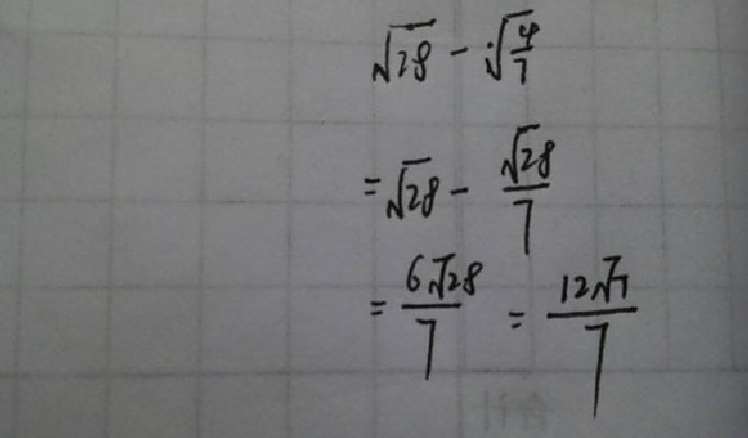 √28 - √(4/7)
= √28 - √28/7
= 6√28/7 = 12√7/7